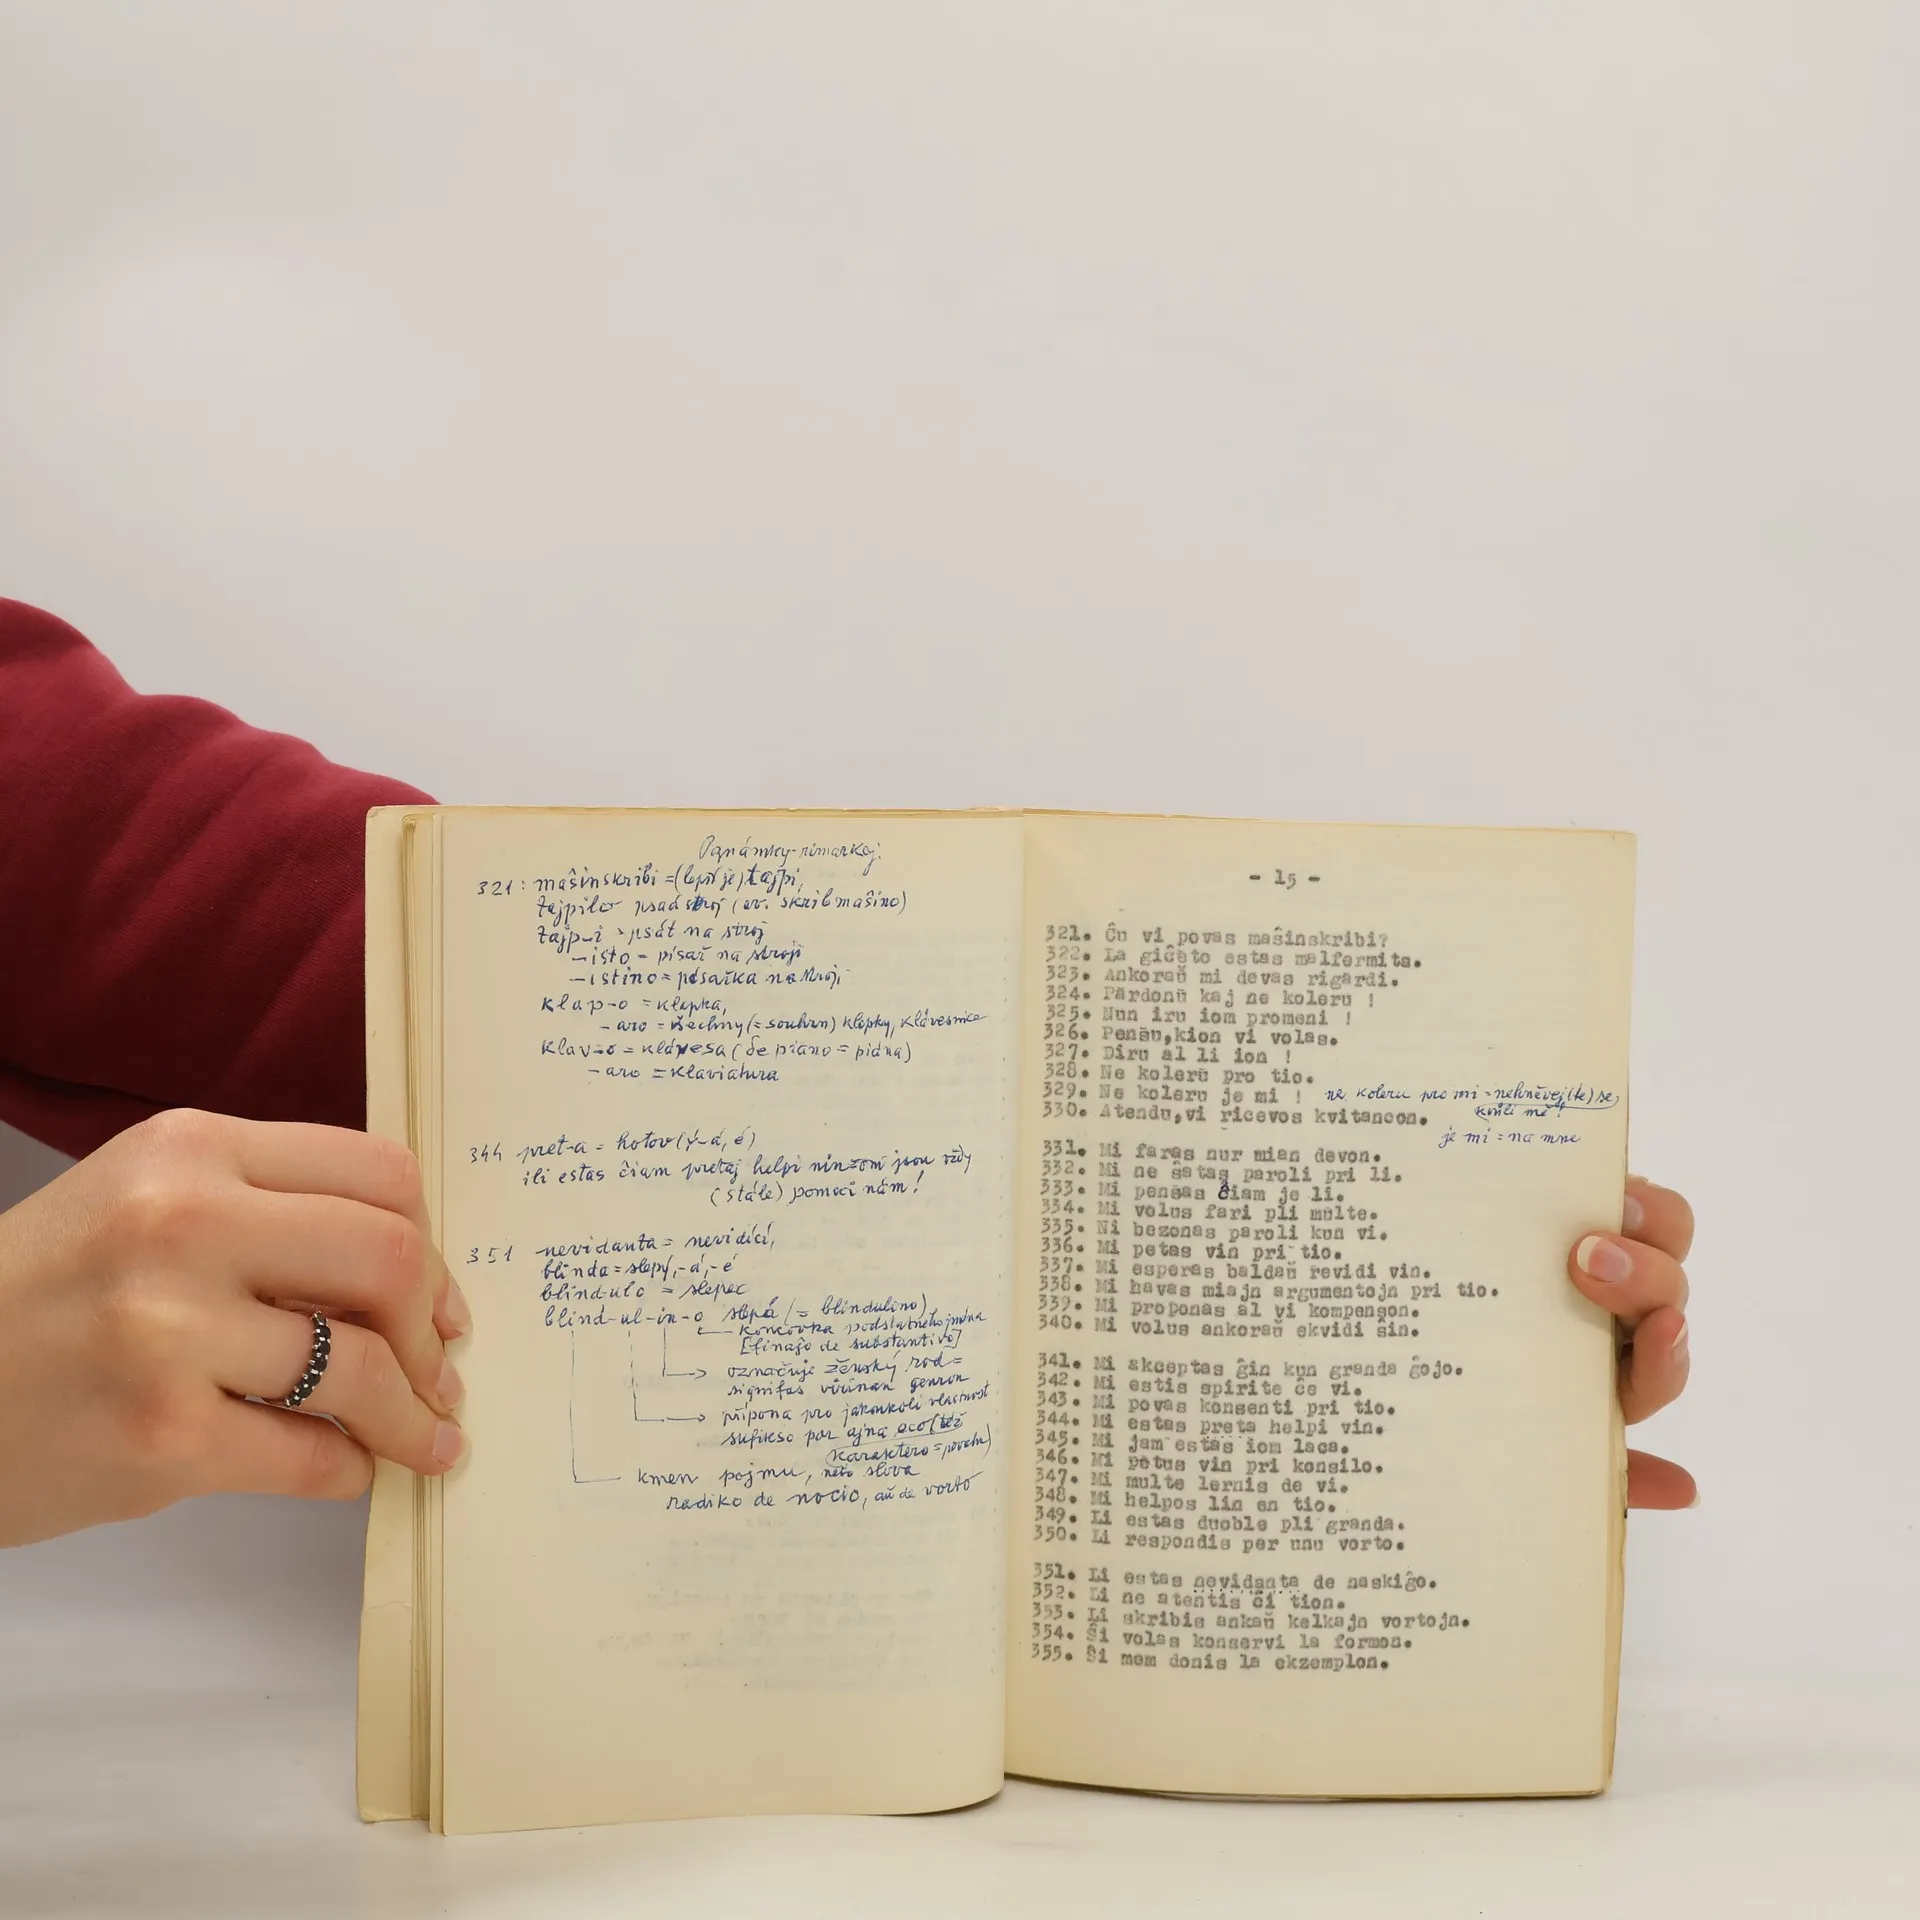 Poznámky-rimarkoj:
321: maŝinskribi = (lepší je) tajpi,
tajpilo psací stroj (ev. skribmaŝino)
tajp-i = psát na stroj
-isto = písař na stroji
-istino = písařka na stroji
klap-o = klapka,
-aro = všechny (= souhrn) klapky, klávesnice
klav-o = klávesa (de piano = piána)
-aro = klaviatura
344 pret-a = hotov (ý-á, é)
ili estas ĉiam pretaj helpi nin = oni jsou vždy
(stále) pomoci nám!
351 nevidanta = nevidící,
blinda = slepý,-á,-é
blind-ulo = slepec
blind-ul-in-o slepá (= blindulino)
koncovka podstatného jména
[finaĵo de substantivo]
označuje ženský rod =
signifas virinan genron
přípona pro jakoukoli vlastnost
sufikso por ajna eco (též
karaktero = povaha)
kmen pojmu, nebo slova
radiko de nocio, aŭ de vorto
- 15 -
321. Ĉu vi povas maŝinskribi?
322. La giĉeto estas malfermita.
323. Ankoraŭ mi devas rigardi.
324. Pardonu kaj ne koleru !
325. Nun iru iom promeni !
326. Pensu,kion vi volas.
327. Diru al li ion !
328. Ne koleru pro tio.
329. Ne koleru je mi ! ne koleru pro mi = nehněvej(te) se
kvůli mě!
330. Atendu,vi ricevos kvitancon.
je mi = na mne
331. Mi faras nur mian devon.
332. Mi ne ŝatas paroli pri li.
333. Mi pensas ĉiam je li.
334. Mi volus fari pli multe.
335. Ni bezonas paroli kun vi.
336. Mi petas vin pri tio.
337. Mi esperas baldaŭ revidi vin.
338. Mi havas miajn argumentojn pri tio.
339. Mi proponas al vi kompenson.
340. Mi volus ankoraŭ ekvidi ŝin.
341. Mi akceptas ĝin kun granda ĝojo.
342. Mi estis spirite ĉe vi.
343. Mi povas konsenti pri tio.
344. Mi estas preta helpi vin.
345. Mi jam estas iom laca.
346. Mi petus vin pri konsilo.
347. Mi multe lernis de vi.
348. Mi helpos lin en tio.
349. Li estas duoble pli granda.
350. Li respondis per unu vorto.
351. Li estas nevidanta de naskiĝo.
352. Li ne atentis ĉi tion.
353. Li skribis ankaŭ kelkajn vortojn.
354. Ŝi volas konservi la formon.
355. Ŝi mem donis la ekzemplon.